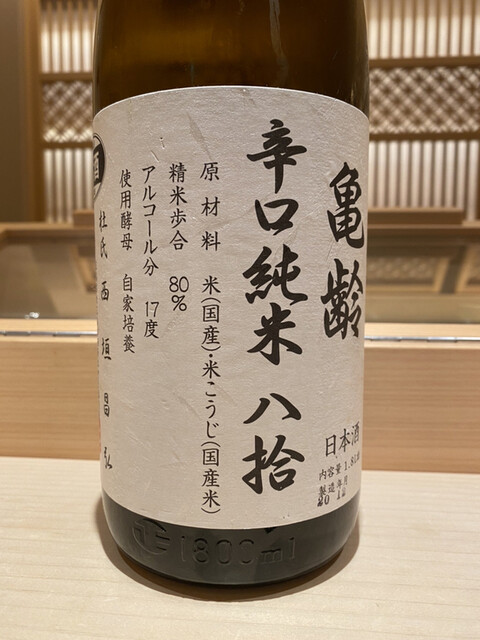 亀齢
辛口純米 八拾
日本酒
原材料 米(国産)・米こうじ(国産米)
精米歩合 80%
アルコール分 17度
使用酵母 自家培養
杜氏 西垣昌弘
1800ml